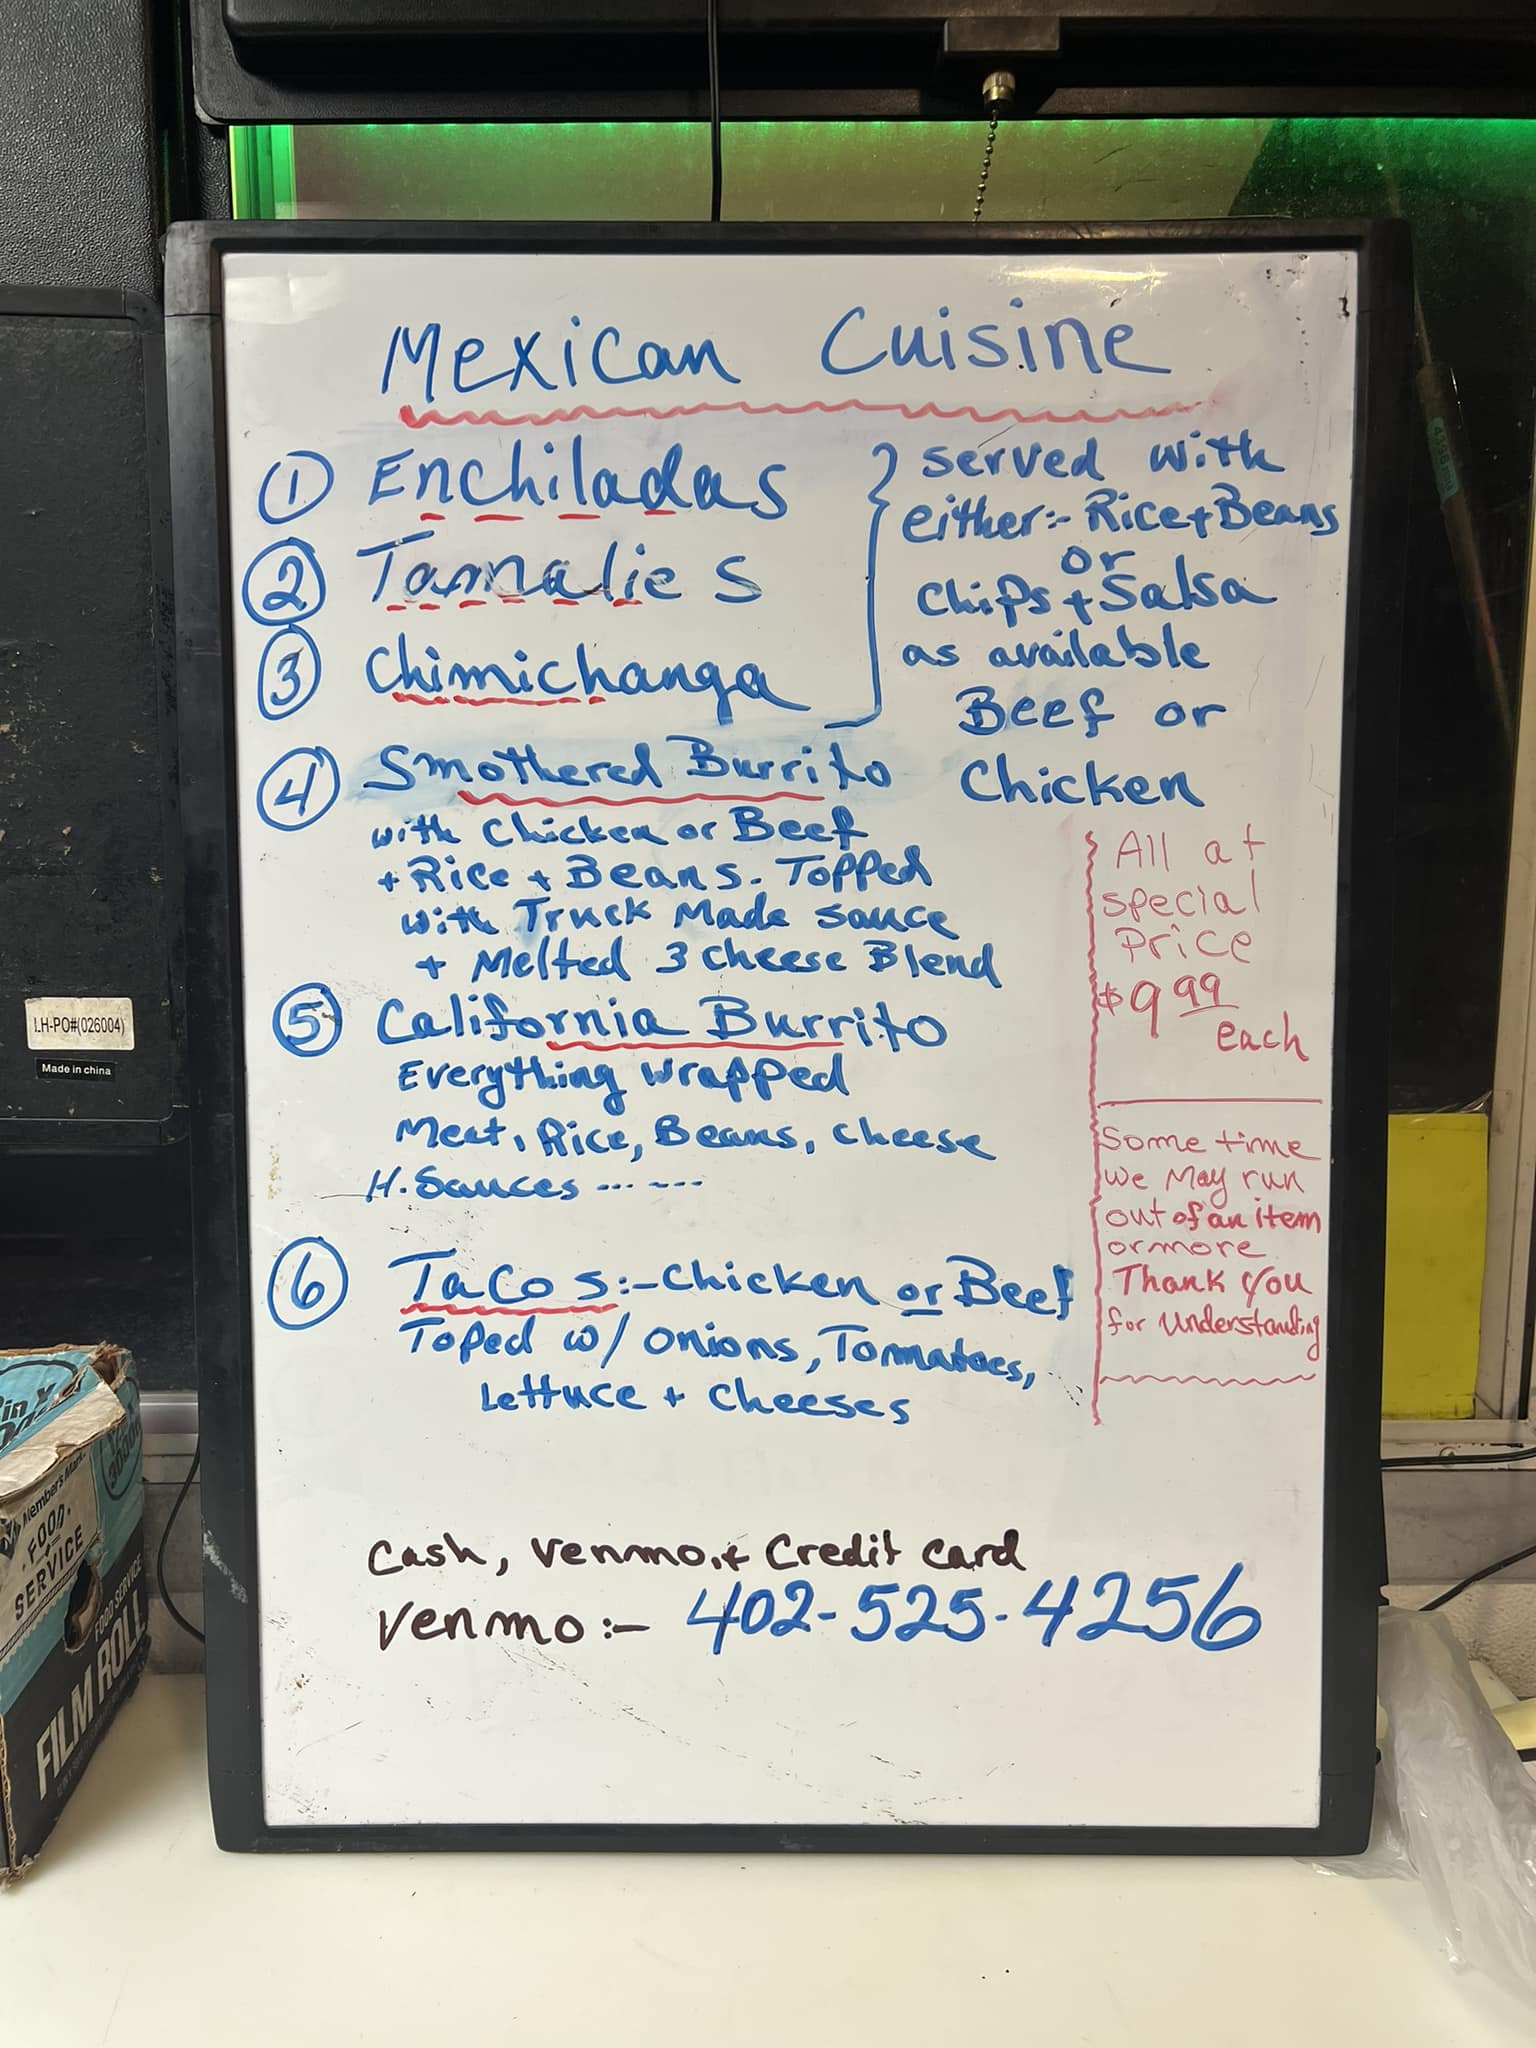 Mexican Cuisine
① Enchiladas
② Tamalies
③ Chimichanga
served with
either:- Rice + Beans
or
Chips + Salsa
as available
Beef or
Chicken
④ Smothered Burrito
with Chicken or Beef
+ Rice + Beans. Topped
with Truck Made sauce
+ Melted 3 cheese Blend
⑤ California Burrito
Everything wrapped
Meat, Rice, Beans, cheese
H. Sauces ... ---
⑥ Tacos:- Chicken or Beef
Toped w/ onions, Tommatoes,
Lettuce + cheeses
All at
special
Price
$9.99
each
Some time
we May run
out of an item
or more
Thank you
for Understanding
Cash, Venmo, + Credit card
Venmo:- 402-525-4256
LH-PO#(026004)
Made in china
Member's Mark
FOOD
SERVICE
FOOD SERVICE
FILM ROLL